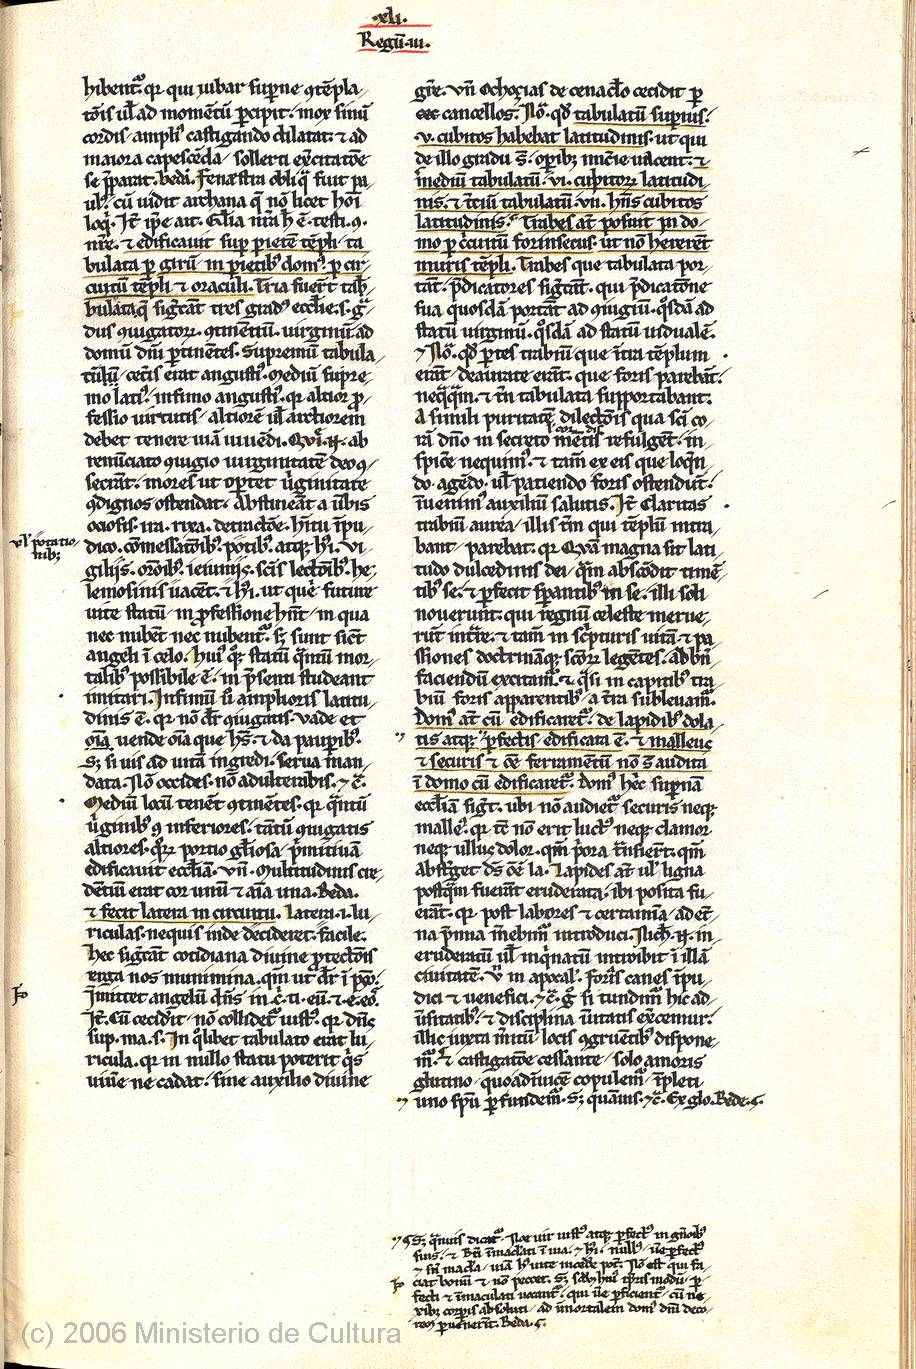 .xli.
Regū .iii.
hibent᷑. qꝛ qui iubar supne ꝯtēpla
tōis ul̄ ad momētū ꝑcipit. mox sinū
cordis ampli᷒ castigando dilatat. ⁊ ad
maiora capescēda sollerti exc̄itatōe
se p̄parat. beda. Fenestra obliq̄ fuit pa
ul᷒. cū uidit archana q̄ nō licet hoī
loq̇. Jt̄ ip̄e ait. Gl̄ia nr̄a h̄ ē. testi. ꝯ.
nr̄e. ⁊ edificauit suꝑ pietē tēpli ta
bulata ꝑ girū in pietib᷒ dom᷒. ꝑ cir
cuitū tēpli ⁊ oraculi. Tria fuer̄t tab
bulataq̄ fiḡcāt tres grad᷒ eccl̄ie. s. g̃
dus ꝯiugatoꝝ. ꝯtinētiū. uirginū. ad
domū dn̄i ꝑtinētes. Supremū tabula
tūlū cet̄is erat angusti᷒. Mediū supre
mo lati᷒. infimo angusti᷒. qꝛ altior ꝓ
fessio uirtutis altiorē ul̄ arctiorem
debet tenere uiā uiuēdi. Qui. n̄. ab
renūciato ꝯiugio uirginitatē deo ꝯ
secrāt. mores ut oꝑtet ūginitate
ꝯdignos ostendat. Abstineāt a ūbis
ociosis. ira. rixa. detractōe. h̄itu īpu
dico. cōmessatōib᷒. potib᷒. atqꝫ hi. vi
vl̄ potatio
nibꝫ
giliis. orōib᷒. ieiuniis. sc̄is lectōib᷒. he
lemosinis uacēt. ⁊ hi. ut que future
uite statū in ꝓfessione hn̄t in qua
nec nubēt nec nubent᷑. sꝫ sunt sic̄t
angeli ī celo. Hui᷒ qꝫ statū q̄ntū mor
talib᷒ possibile ē. in p̄senti studeant
imitari. Infimū ū amplioris latitu
dinis ē. qꝛ nō dr̄ ꝯiugatis. Vade et
oīa uende oīa que hēs. ⁊ da paupib᷒.
Sꝫ si uis ad uitā ingredi. serua man
data. Nō occides. nō adulterabis. ⁊ c̄.
Mediū locū tenēt ꝯtinētes. qꝛ q̄ntū
ūginib᷒ ꝯ inferiores. tātū ꝯiugatis
altiores. qꝛ portio gl̄iosa p̄mitiuā
edificauit eccl̄iam. Vn̄. Multitudinis cre
dētiū erat cor unū ⁊ aīa una. Beda.
⁊ fecit latera in circuitu. Latera .i. lu
riculas. nequis inde decideret. facile.
Hec fiḡcāt cotidiana diuine ꝓtectōis
erga nos munimina. qm̄ ut dr̄ ī ps̄o.
Jmittet angelū dn̄s in c̄. ti. eū. ⁊ e. eo᷒.
Jt̄. Cū cecidit nō collidet᷑ iust᷒. qꝛ dn̄s
sup. ma. s. In ql̄ibet tabulato erat lu
ricula. qꝛ in nullo statu poterit q̇s
uiuē ne cadat. sine auxilio diuine
gr̄e. Vn̄ Ochozias de cenaclo cecidit ꝑ
eos cancellos. Nō. qd̄ tabulatū supius.
v. cubitos habebat latitudinis. ut qui
de illo gradu s̄. oꝑibꝫ mīcie uacent. ⁊
mediū tabulatū. vi. cubitoꝝ latitudi
nis. ⁊ t̄ciū tabulatū. vii. hn̄s cubitos
latitudinis. Trabes at̄ posuit in do
mo ꝑ c̄cuitū forinsecus. ut nō hererēt
muris tēpli. Trabes que tabulata por
tāt. p̄dicatores fiḡcāt. qui p̄dicatōne
sua quosdā portāt ad ꝯiugiū. qōsdā ad
statū uirginū. qōsdā ad statū uidualē.
⁊ Nō. qd̄ ꝑtes trabiū que īt̄ tēplum
erāt deaurate erāt. que foris parebāt.
neq̄q̄m. ⁊ tn̄ tabulata supportabant.
A simili puritatē dilectōis qua sc̄i co
rā dn̄o in secreto mētis refulgēt. in
spic̄e nequim᷒. ⁊ tam̄ ex eis que loq̄n
do. agēdo. ul̄ patiendo foris ostendūt.
īuenim᷒ auxiliū salutis. Jt̄ Claritas
trabiū aurea illis tm̄ qui tēplū intra
bant parebat. qꝛ Quā magna sit lati
tudo dulcedinis dei q̄m abscōdit timē
tib᷒ se. ⁊ ꝑfecit sꝑantib᷒ in se. illi soli
nouerunt. qui regnū celeste merue
rūt intr̄e. ⁊ tam̄ in sc̄pturis uitā ⁊ pa
ssiones doctrināqꝫ sc̄oꝝ legētes. ad bn̄
faciendū excitam᷑. ⁊ q̄si in capitib᷒ tra
biū foris apparentib᷒ a t̄ra subleuam᷑.
Dom᷒ at̄ cū edificaret᷑. de lapidib᷒ dola
tis atqꝫ ꝑfectis edificata ē. ⁊ malleus
⁊ securis ⁊ oē ferramētū nō s̄ audita
ī domo cū edificaret᷑. Dom᷒ hec supnā
eccl̄iam sig̅t. ubi nō audiet᷑ securis neqꝫ
malle᷒. qꝛ t̄c nō erit luct᷒ neqꝫ clamor
neqꝫ ullus dolor. qm̄ p̄ora t̄nsierūt. qm̄
abst̄get ds̄ oē la. Lapides at̄ ul̄ ligna
postq̄m fuerāt eruderata. ibi posita fu
erāt. qꝛ post labores ⁊ certamīa ad et̄
na p̄mia mebim᷑ introduci. Nich̄. n̄. in
eruderatū ul̄ inq̇natū intrabit ī illā
ciuitatē. Vn̄ in apocal̄. Foris canes īpu
dici ⁊ uenefici. ⁊c̄. g̊ si tundim᷑ hic ad
ūsitatib᷒. ⁊ disciplina ūitatis exc̄emur.
illic iuxta m̄itū locis ꝯgruētib᷒ dispone
m᷑. ⁊ castigatōe cessante solo amoris
glutino quo adiuicē copulem᷑ īpleti
uno sp̄u ꝑfundem᷑. Sꝫ quāuis. ⁊c̄. Ex glo. Bede. ς.
ς Sꝫ q̄muis dicat᷑. Noe uir iust᷒ atqꝫ ꝑfect᷒ in gn̄oib᷒
suis. ⁊ Bt̄i īmaclati ī uia. ⁊ hi. null᷒ ūe ꝑfect᷒
⁊ sn̄ macl̄a uiā h᷒ uite incedē pōt. Nō est qui fa
ciat bonū ⁊ nō peccet. Sꝫ
fecti ⁊ īmaculati uocant᷑. qui ūe ꝑficient᷑. cū ne
xibꝫ corꝑis absoluti ad īmortalem domū dn̄i deco
rem ꝑuenerīt. Beda. ς.
(c) 2006 Ministerio de Cultura